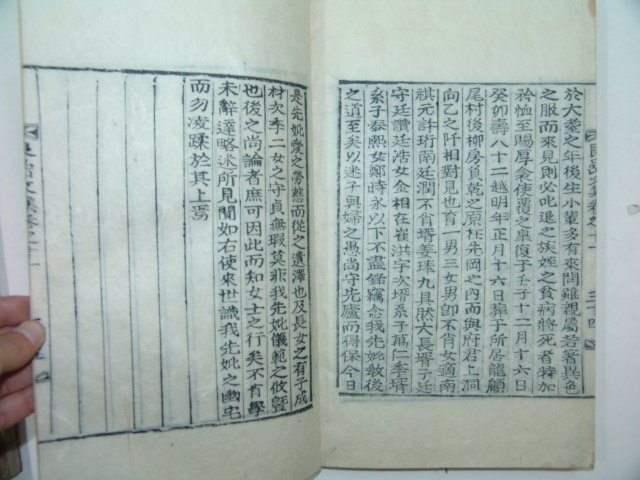 於大耋之年後生小輩多有來問雖親屬若著異色
之服而來見則必叱退之族姪之貧病將死者特加
矜恤至賜厚衾使覆之皐復于壬子十二月十六日
癸卯壽八十二越明年正月十六日葬于所居龍顧
尾村後柳房負乾之原枉朱岡之內而與府君上洞
向乙之阡相對見也育一男三女男卽不肖女適南
祺元許珩南廷潤不肖壻姜瑧九具然大長壻子廷
守廷讚廷浩女金相在崔洪字次壻系子萬仁季壻
系子泰熙女鄭時永以下不盡錄竊念我先妣敎後
之道至矣以迷子與婦之愚尙守先廬而得保今日
是先妣愛之勞慈而從之遺澤也及長女之有子成
材次季二女之守貞無瑕莫非我先妣儀範之攸曁
也後之尙論者庶可因此而知女士之行矣不肖學
未辭達略述所見聞如右使來世識我先妣之幽宅
而勿凌蹂於其上焉